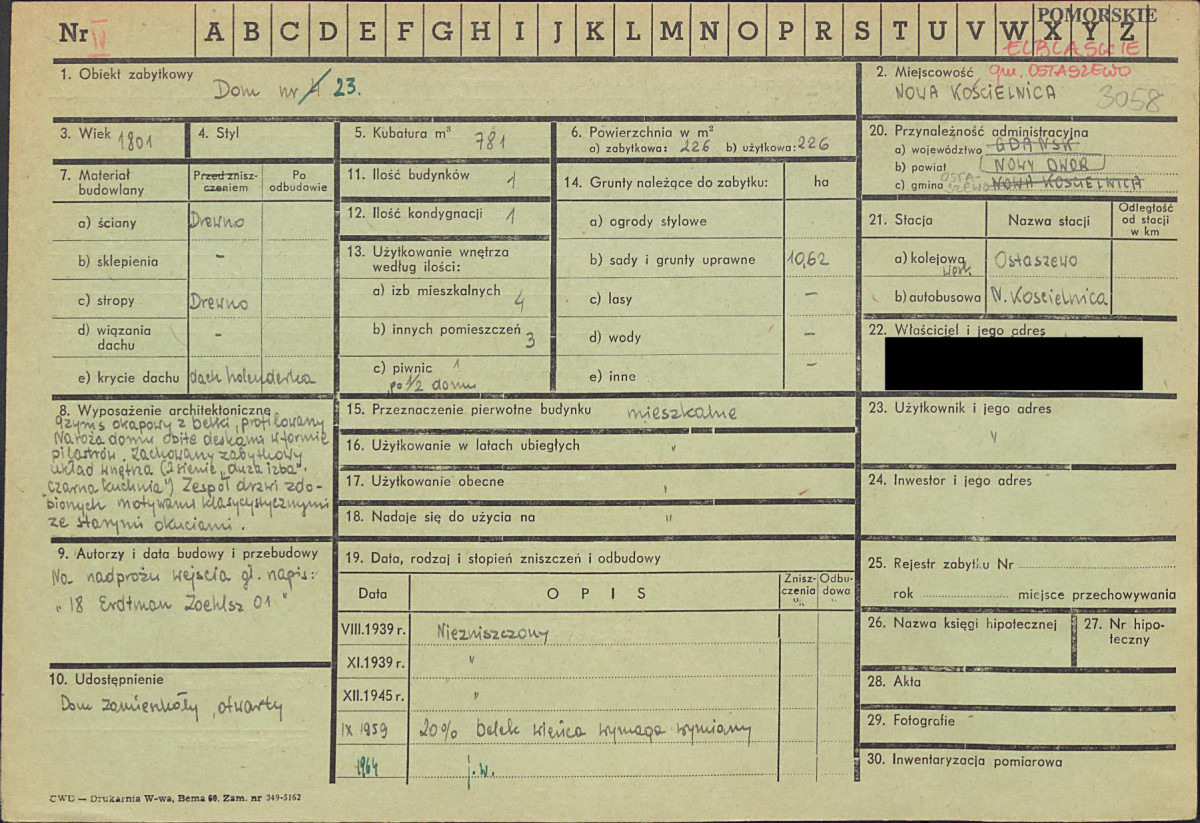 POMORSKIE
Nr IV A B C D E F G H I J K L M N O P R S T U V W X Y Z
ELBLĄSKIE
gm. OSTASZEWO
1. Obiekt zabytkowy
Dom nr 4 23.
2. Miejscowość
NOWA KOŚCIELNICA
3058
3. Wiek 1801
4. Styl
5. Kubatura m³ 781
6. Powierzchnia w m²
a) zabytkowa: 226 b) użytkowa: 226
20. Przynależność administracyjna
a) województwo GDAŃSK
b) powiat NOWY DWÓR
c) gmina OSTASZEWO NOWA KOŚCIELNICA
7. Materiał budowlany
Przed zniszczeniem
Po odbudowie
a) ściany Drewno
b) sklepienia -
c) stropy Drewno
d) wiązania dachu -
e) krycie dachu dach holenderka
11. Ilość budynków 1
12. Ilość kondygnacji 1
13. Użytkowanie wnętrza
według ilości:
a) izb mieszkalnych 4
b) innych pomieszczeń 3
c) piwnic 1
po 1/2 domu
14. Grunty należące do zabytku: ha
a) ogrody stylowe
b) sady i grunty uprawne 10,62
c) lasy –
d) wody –
e) inne –
21. Stacja Nazwa stacji Odległość od stacji w km
a) kolejowa wąsk. Ostaszewo
b) autobusowa N. Kościelnica
22. Właściciel i jego adres
8. Wyposażenie architektoniczne
gzyms okapowy z belki, profilowany
Naroża domu obite deskami w formie
pilastrów. Zachowany zabytkowy
układ wnętrza (2 sienie, „duża izba".
„czarna kuchnia") Zespół drzwi zdo-
bionych motywami klasycystycznymi
ze starymi okuciami.
15. Przeznaczenie pierwotne budynku mieszkalne
16. Użytkowanie w latach ubiegłych "
17. Użytkowanie obecne "
18. Nadaje się do użycia na "
23. Użytkownik i jego adres
"
24. Inwestor i jego adres
9. Autorzy i data budowy i przebudowy
Na nadprożu wejścia gł. napis:
„18 Erdtman Zoehlsz 01"
19. Data, rodzaj i stopień zniszczeń i odbudowy
Data O P I S Zniszczenia % Odbudowa %
VIII.1939 r. Niezniszczony
XI.1939 r. "
XII.1945 r. "
IX 1959 20% belek wieńca wymaga wymiany
1964 j.w.
25. Rejestr zabytku Nr
rok miejsce przechowywania
26. Nazwa księgi hipotecznej
27. Nr hipoteczny
28. Akta
29. Fotografie
30. Inwentaryzacja pomiarowa
10. Udostępnienie
Dom zamieszkały, otwarty
CWD — Drukarnia W-wa, Bema 60. Zam. nr 349-5162